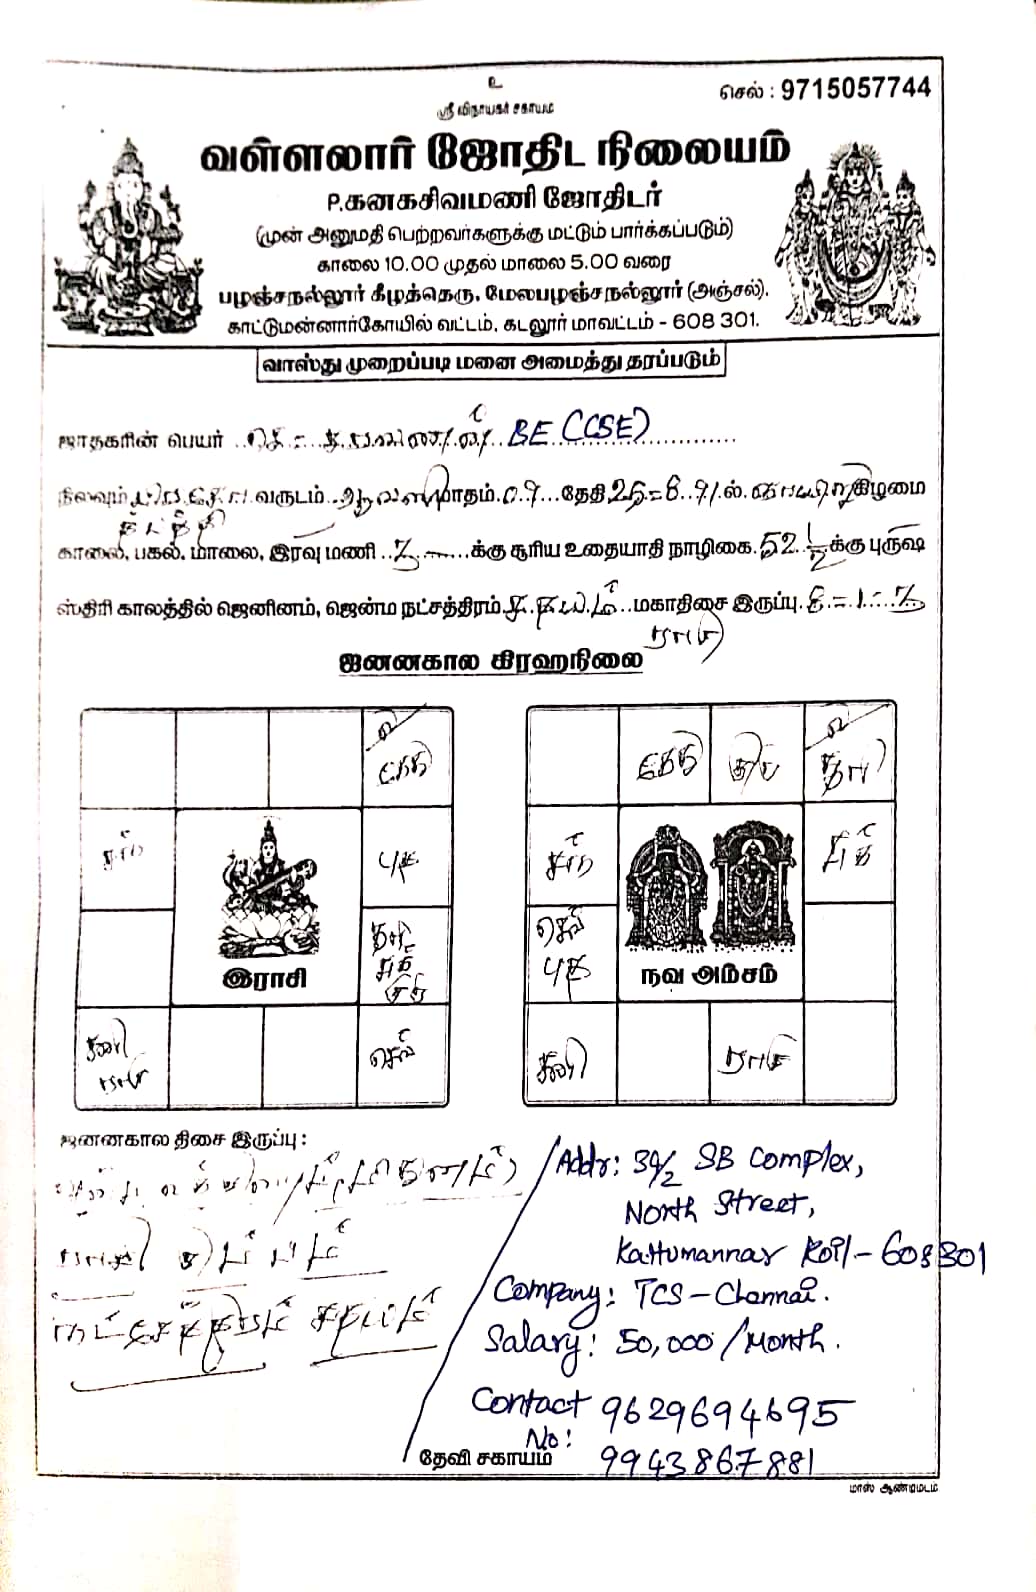 உ
ஸ்ரீ விநாயகர் சகாயம்
செல் : 9715057744
வள்ளலார் ஜோதிட நிலையம்
P.கனகசிவமணி ஜோதிடர்
(முன் அனுமதி பெற்றவர்களுக்கு மட்டும் பார்க்கப்படும்)
காலை 10.00 முதல் மாலை 5.00 வரை
பழஞ்சநல்லூர் கீழத்தெரு, மேலபழஞ்சநல்லூர் (அஞ்சல்),
காட்டுமன்னார்கோயில் வட்டம், கடலூர் மாவட்டம் - 608 301.
வாஸ்து முறைப்படி மனை அமைத்து தரப்படும்
ஜாதகரின் பெயர் BE (CSE)
நிலவும் வருடம் ஆவணி மாதம் 09 தேதி 25=8.91ல் கிழமை
காலை, பகல், மாலை, இரவு மணி 3 க்கு சூரிய உதையாதி நாழிகை 52 1/2 க்கு புருஷ
ஸ்திரி காலத்தில் ஜெனினம், ஜென்ம நட்சத்திரம் சதயம் மகாதிசை இருப்பு
ராகு
ஜனனகால கிரஹநிலை
ல
கேது
சந்
புத
சூரி
சுக்
குரு
சனி
ராகு
செவ்
இராசி
ல
கேது
குரு
சூரி
சந்
சுக்
செவ்
புத
சனி
ராகு
நவ அம்சம்
ஜனனகால திசை இருப்பு :
ராசி கும்பம்
நட்சத்திரம் சதயம்
Addr: 39/2 SB Complex,
North Street,
Kattumannar Koil - 608301
Company: TCS - Chennai.
Salary: 50,000/Month.
Contact No: 9629694695
9943867881
தேவி சகாயம்
மாஸ் ஆண்டிமடம்